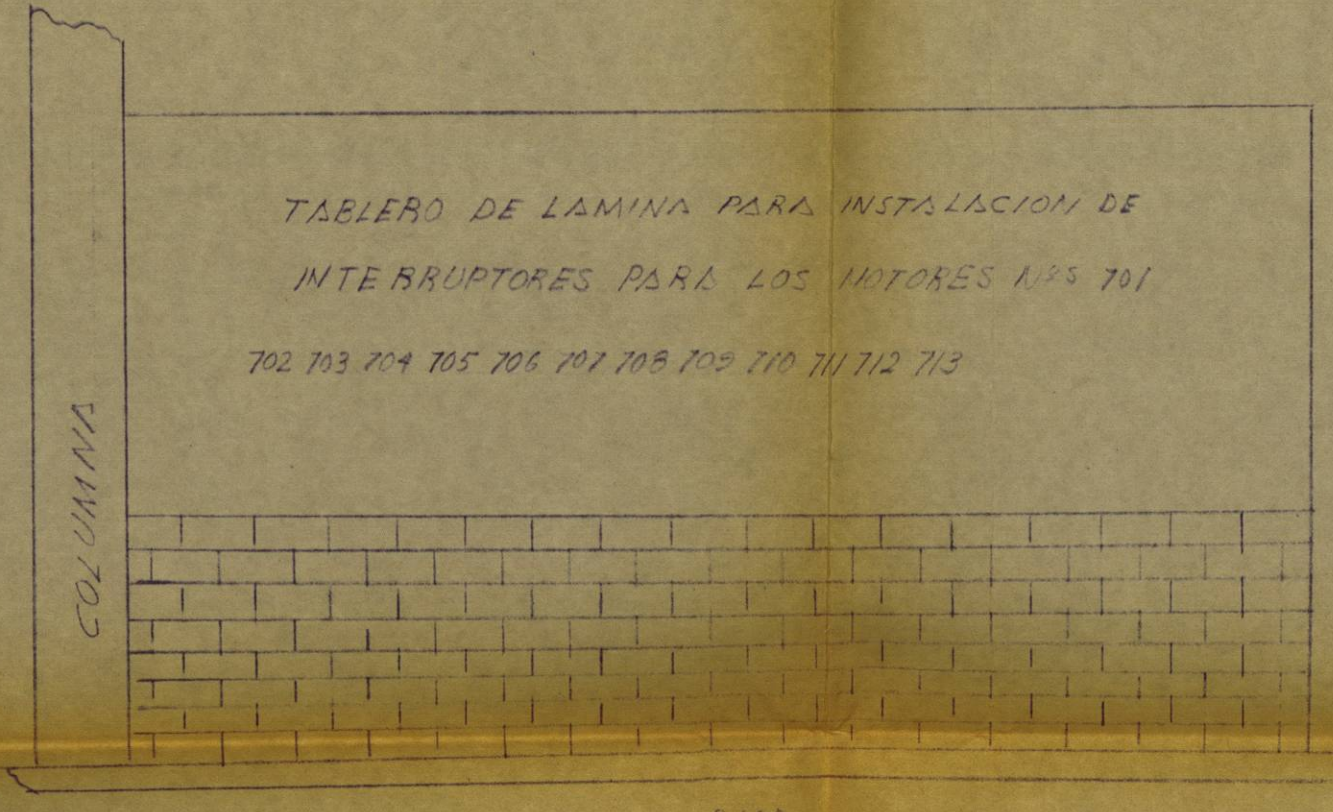 TABLERO DE LAMINA PARA INSTALACION DE
INTERRUPTORES PARA LOS MOTORES NºS 701
702 703 704 705 706 707 708 709 710 711 712 713
COLUMNA